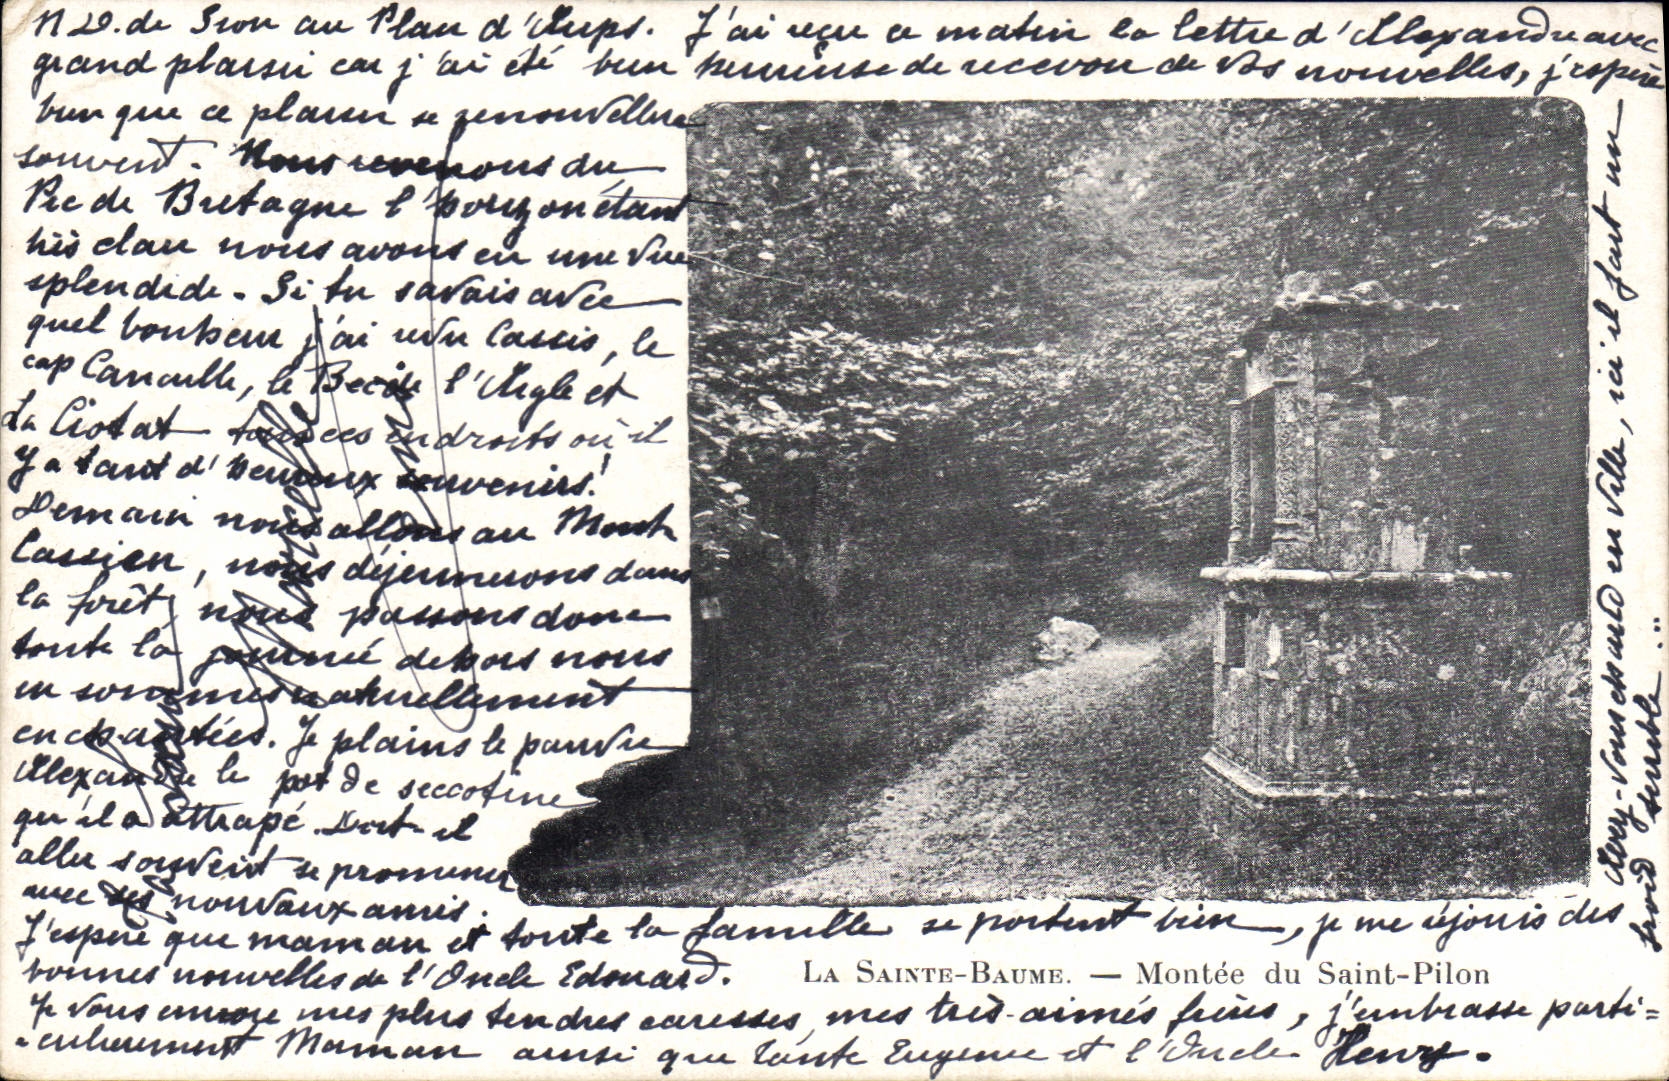 N D. de Sion au Plan d'Aups. J'ai reçu ce matin la lettre d'Alexandre avec
grand plaisir car j'ai été bien heureuse de recevoir de vos nouvelles, j'espère
bien que ce plaisir se renouvellera
souvent. Nous revenons du
Pic de Bretagne l'horizon étant
très clair nous avons eu une vue
splendide. Si tu savais avec
quel bonheur j'ai revu Cassis, le
cap Canaille, le Bec de l'Aigle et
La Ciotat tous ces endroits où il
y a tant d'heureux souvenirs!
Demain nous allons au Mont
Cassien, nous déjeunerons dans
la forêt, nous passons donc
toute la journée dehors nous
en sommes naturellement
enchantées. Je plains le pauvre
Alexandre le pot de seccotine
qu'il a attrapé. Doit-il
aller souvent se promener
avec ses nouvaux amis.
J'espère que maman et toute la famille se portent bien, je me réjouis des
bonnes nouvelles de l'Oncle Edouard.
Je vous envoie mes plus tendres caresses, mes très-aimés frères, j'embrasse parti=
=culierement Maman ainsi que Tante Eugenie et l'Oncle Henry.
LA SAINTE-BAUME. — Montée du Saint-Pilon
Avez-vous chaud en ville, ici il fait un
froid terrible...
Marcelle